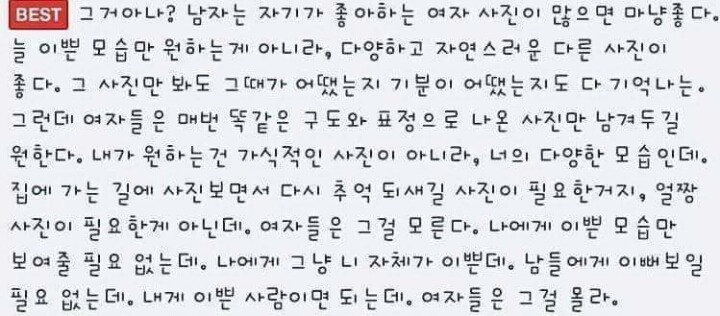 BEST 그거아나? 남자는 자기가 좋아하는 여자 사진이 많으면 마냥좋다.
늘 이쁜 모습만 원하는게 아니라, 다양하고 자연스러운 다른 사진이
좋다. 그 사진만 봐도 그때가 어땠는지 기분이 어땠는지도 다 기억나는.
그런데 여자들은 매번 똑같은 구도와 표정으로 나온 사진만 남겨두길
원한다. 내가 원하는건 가식적인 사진이 아니라, 너의 다양한 모습인데.
집에 가는 길에 사진보면서 다시 추억 되새길 사진이 필요한거지, 얼짱
사진이 필요한게 아닌데. 여자들은 그걸 모른다. 나에게 이쁜 모습만
보여줄 필요 없는데. 나에게 그냥 니 자체가 이쁜데. 남들에게 이뻐보일
필요 없는데. 내게 이쁜 사람이면 되는데. 여자들은 그걸 몰라.